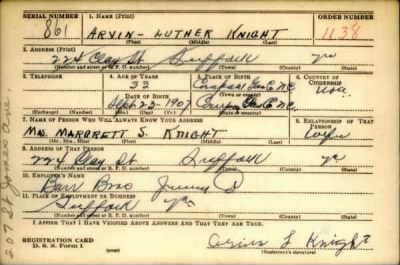 SERIAL NUMBER 1. NAME (Print) ORDER NUMBER
861 ARVIN - LUTHER KNIGHT 1138
(First) (Middle) (Last)
2. ADDRESS (Print)
224 Clay St Suffolk Va
(Number and street or R. F. D. number) (Town) (County) (State)
3. TELEPHONE 4. AGE IN YEARS 5. PLACE OF BIRTH 6. COUNTRY OF CITIZENSHIP
33 N.C. USA
DATE OF BIRTH (Town or county)
Sept 23-1907 N.C.
(Exchange) (Number) (Mo.) (Day) (Yr.) (State or country)
7. NAME OF PERSON WHO WILL ALWAYS KNOW YOUR ADDRESS 8. RELATIONSHIP OF THAT PERSON
MRS. MARGRETT S. KNIGHT Wife
(Mr., Mrs., Miss) (First) (Middle) (Last)
9. ADDRESS OF THAT PERSON
224 Clay St Suffolk Va
(Number and street or R. F. D. number) (Town) (County) (State)
10. EMPLOYER'S NAME
Bros
11. PLACE OF EMPLOYMENT OR BUSINESS
Suffolk Va
(Number and street or R. F. D. number) (Town) (County) (State)
I AFFIRM THAT I HAVE VERIFIED ABOVE ANSWERS AND THAT THEY ARE TRUE.
REGISTRATION CARD
D. S. S. Form 1
Arvin L Knight
(Registrant's signature)
207 St James Ave.